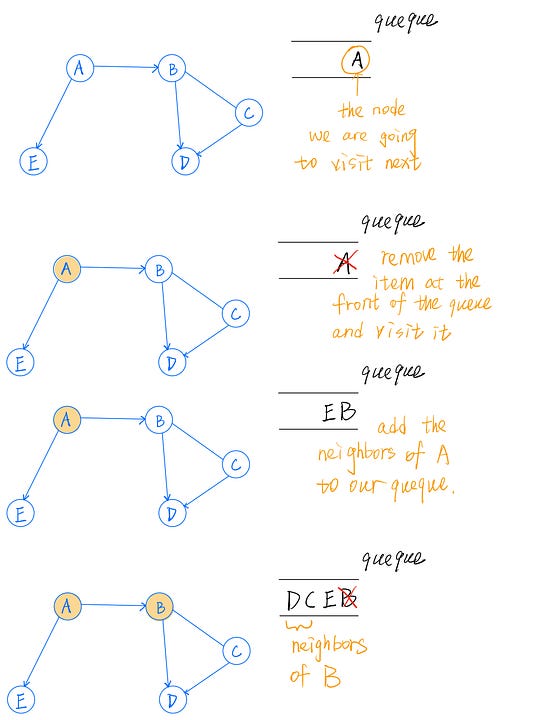 queque
A
B
C
E
D
A
the node
we are going
to visit next
queque
A
B
C
E
D
A
remove the
item at the
front of the queue
and visit it
queque
A
B
C
E
D
EB
add the
neighbors of A
to our queque.
queque
A
B
C
E
D
DCEB
neighbors
of B